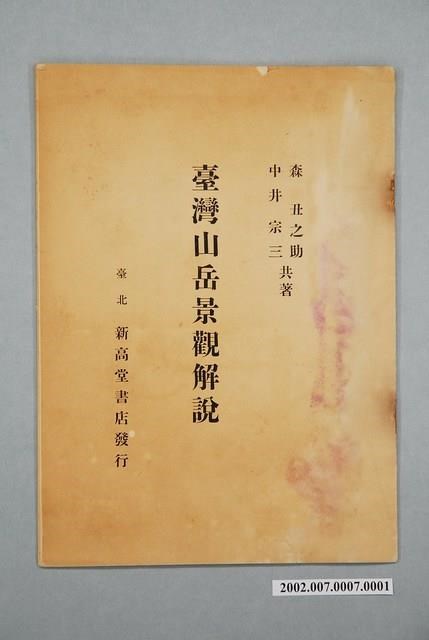 森丑之助
中井宗三
共著
臺灣山岳景觀解說
臺北 新高堂書店發行
2002.007.0007.0001